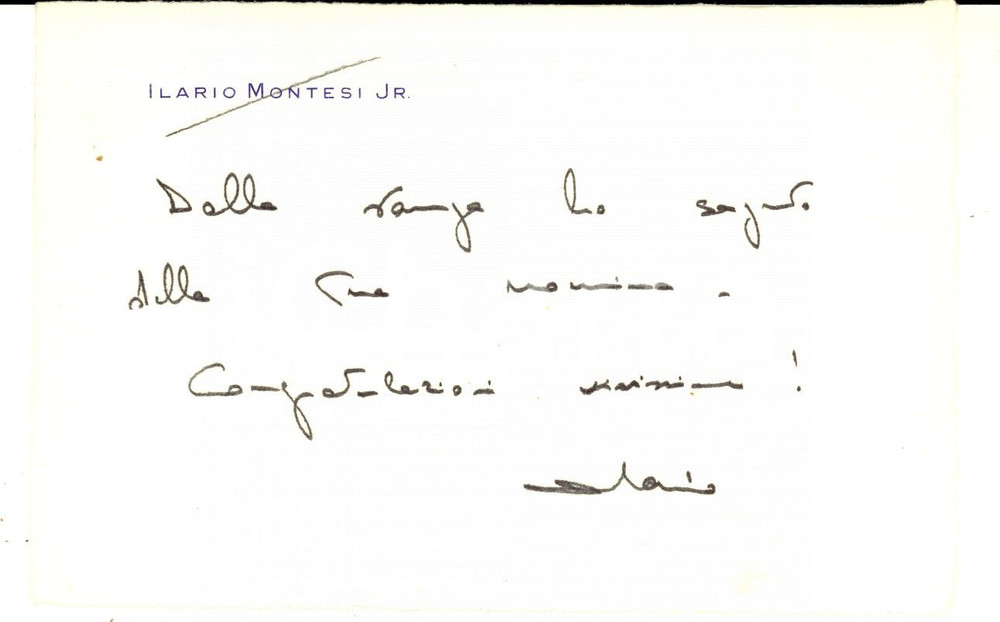 ILARIO MONTESI JR.
Dalla stampa ho saputo
della Tua nomina.
Congratulazioni vivissime!
Ilario